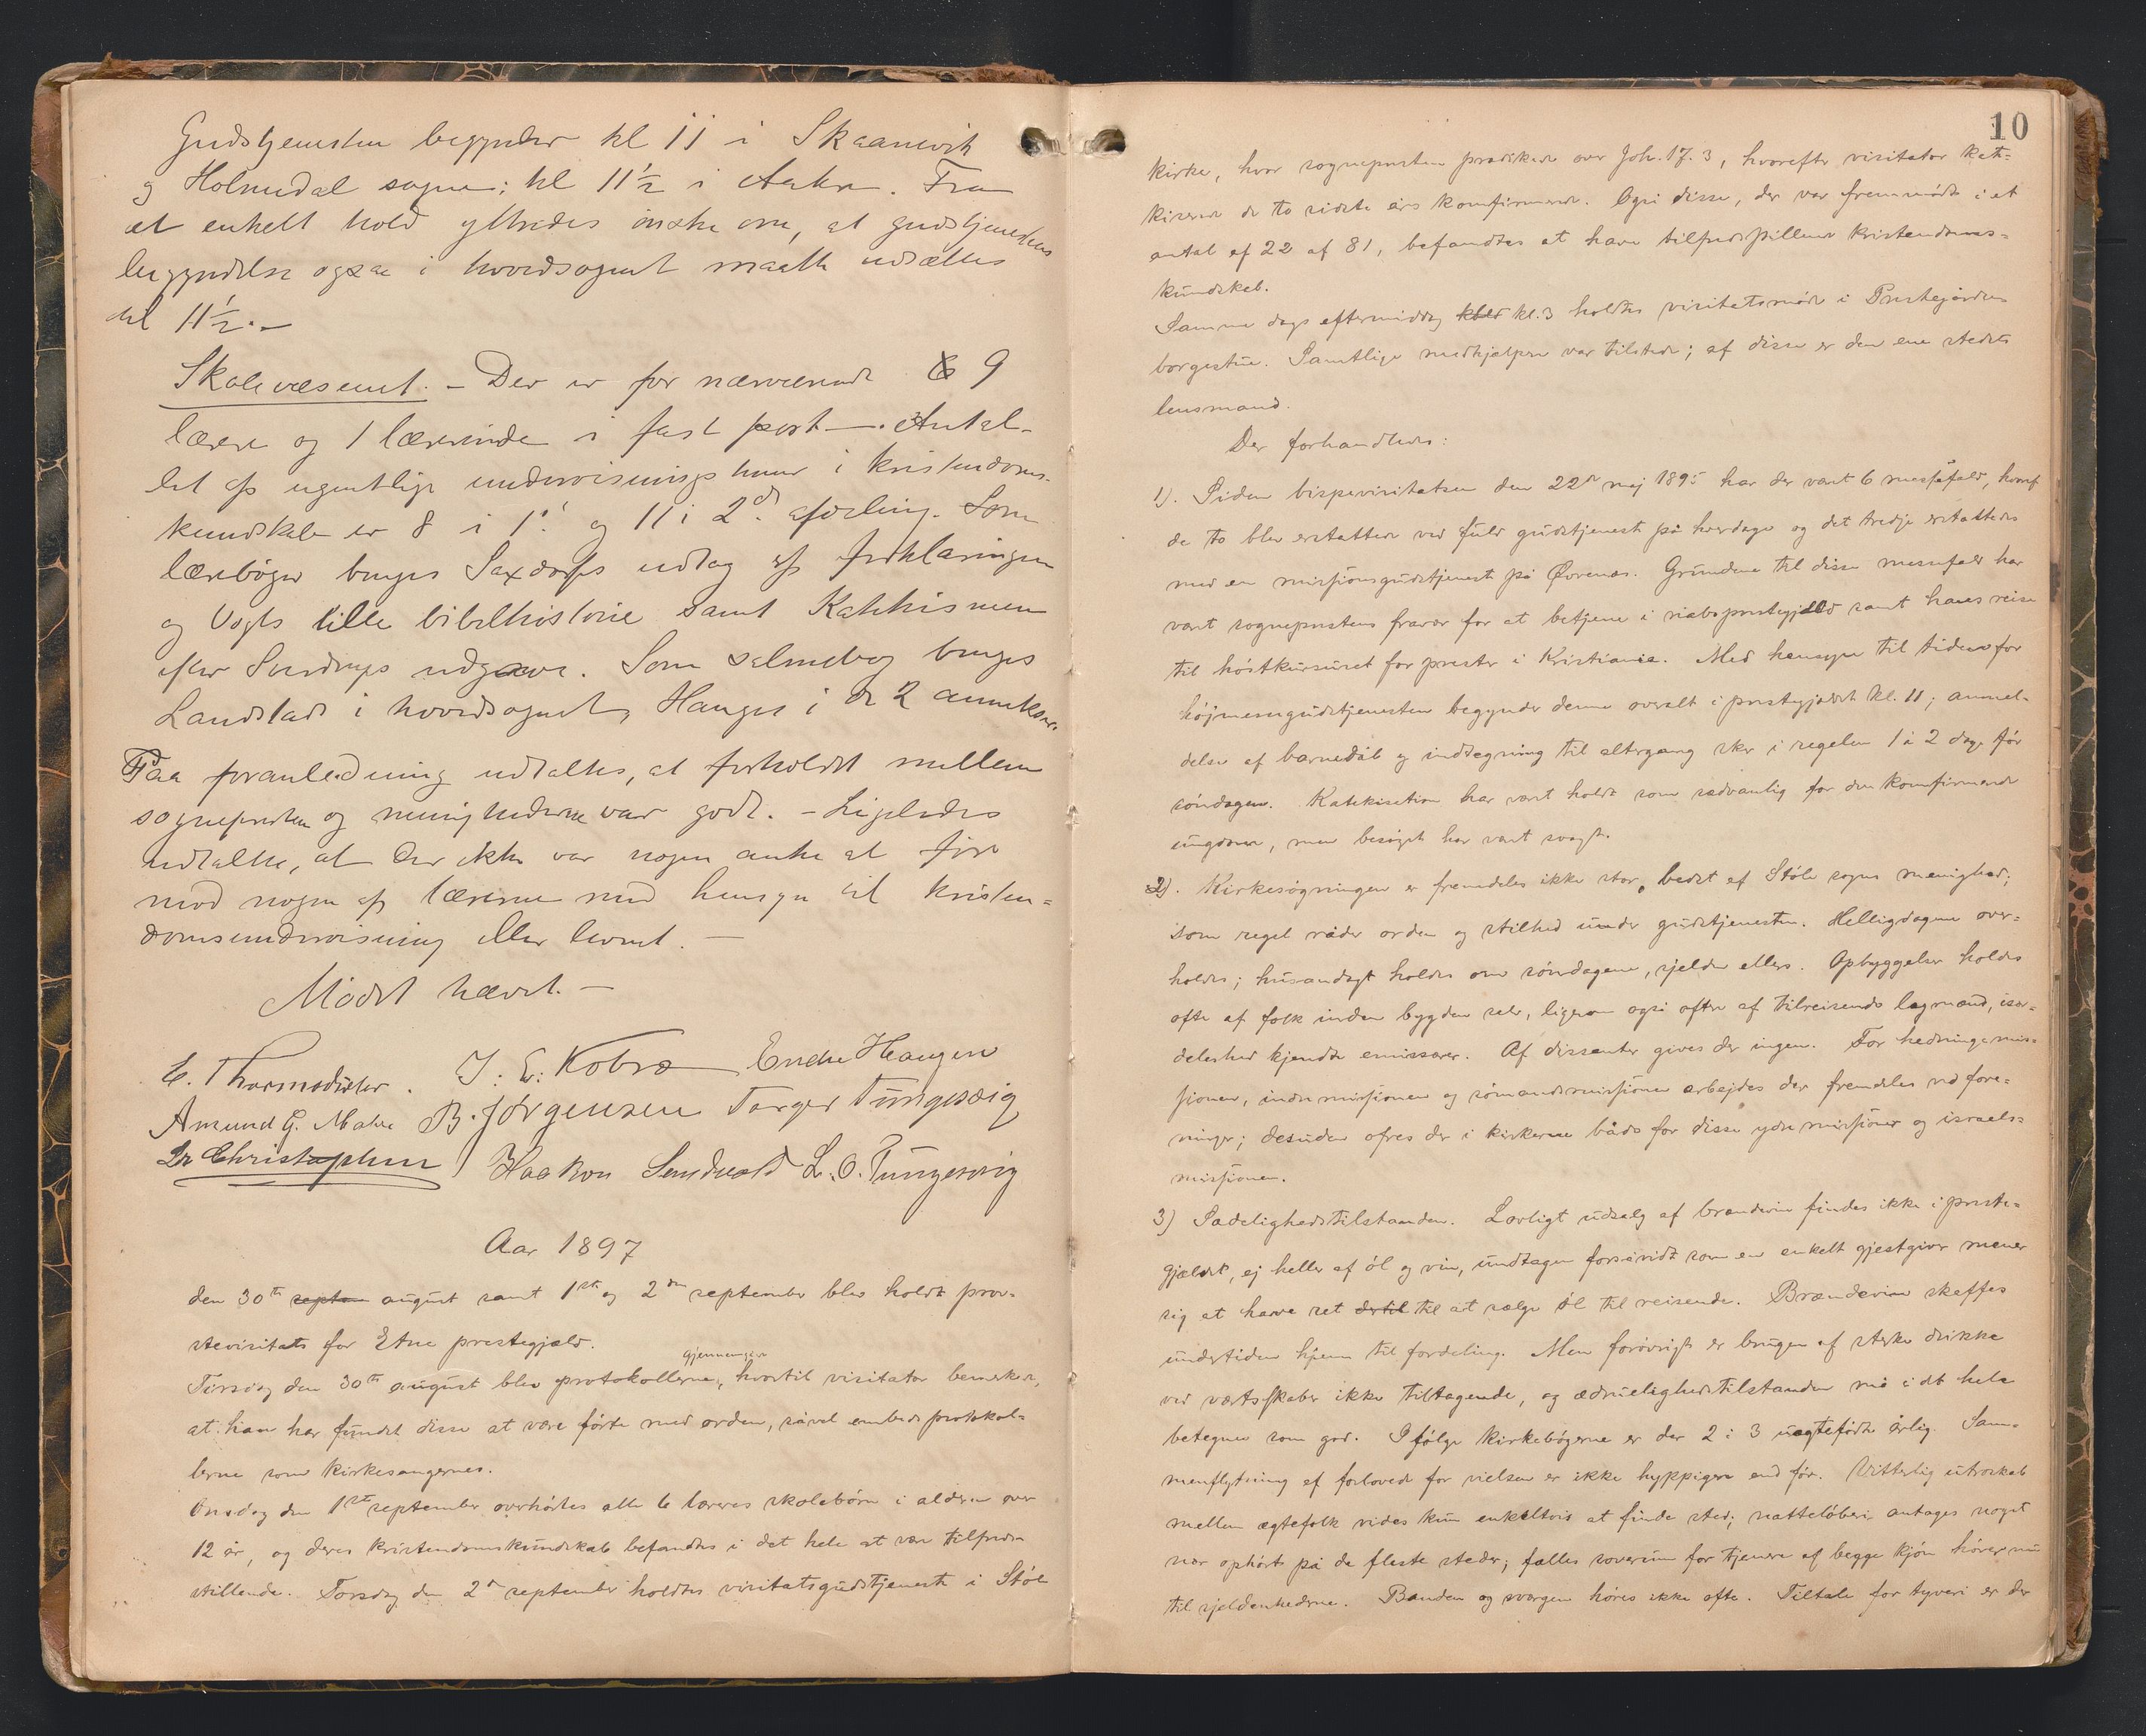 Gudstjenesten begynder kl 11 i Skaanevik
og Holmedal sogne; kl 11½ i Aakre. Fra
et enkelt hold yttredes ønske om, at gudstjenestens
begyndelse ogsaa i hovedsognet maatte udsættes
til 11½.–
Skolevæsenet. – Der er for nærværende 9
lærere og 1 lærerinde i fast post –. Antal-
let af ugentlige undervisningstimer i kristendoms-
kundskab er 8 i 1ste og 11 i 2den afdeling. Som
lærebøger bruges Saxdorfs udtog af forklaringen
og Vogts lille bibelhistorie samt Katekismen
efter Sverdrups udgave. Som salmebog bruges
Landstads i hovedsognet, Hauges i de 2 annekser.
Paa foranledning udtaltes, at forholdet mellem
sognepresten og menighederne var godt. – Ligeledes
udtaltes, at der ikke var nogen anke at føre
mod nogen af lærerne med hensyn til kristen=
domsundervisning eller levnet. –
Mødet hævet. –
E. Thormodsæter. J. E. Kobro Endre Haugen
Amund G. Matre B. Jørgensen Torger Tungesvig
Dr Christophersen Haakon Sandvold L. O. Tungesvig
Aar 1897
den 30te septem august samt 1ste og 2den september blev holdt prov-
stevisitats for Etne prestegjæld.
Tirsdag den 30te august blev protokollerne gjennemgaaet, hvortil visitator bemerker,
at han har fundet disse at være førte med orden, såvel embedsprotokol=
lerne som kirkesangernes.
Onsdag den 1ste september overhørtes alle 6 læreres skolebørn i alderen over
12 år, og deres kristendomskundskab befandtes i det hele at være tilfreds-
stillende. Torsdag den 2den september holdtes visitatsgudstjeneste i Støle
10
kirke, hvor sognepresten prædikede over Joh. 17. 3, hvorefter visitator kate=
kiserede de to sidste års konfirmerede. Også disse, der var fremmødte i et
antal af 22 af 81, befandtes at have tilfredsstillende kristendoms=
kundskab.
Samme dags eftermiddag kl. 3 holdtes visitatsmøde i Prestegårdens
borgestue. Samtlige medhjælpere var tilstede; af disse er den ene stedets
lensmand.
Der forhandledes:
1). Siden bispevisitatsen den 22de maj 1895 har der været 6 messefald, hvoraf
de to blev erstattede ved fuld gudstjeneste på hverdage og det tredje erstattedes
med en missionsgudstjeneste på Øvrenæs. Grundene til disse messefald har
været sogneprestens fravær for at betjene i naboprestegjæld samt hans reise
til høstkursuset for prester i Kristiania. Med hensyn til tiden for
højmessegudstjenesten begynder denne overalt i prestegjældet kl. 11; anmel-
delse af barnedåb og indtegning til altergang sker i regelen 1 à 2 dage før
søndagen. Katekisation har været holdt som sædvanlig for den konfirmerede
ungdom, men besøget har været svagt.
2). Kirkesøgningen er fremdeles ikke stor, bedst af Støle sogns menighed;
som regel råder orden og stilhed under gudstjenesten. Helligdagene over=
holdes; husandagt holdes om søndagene, sjelden ellers. Opbyggelser holdes
ofte af folk inden bygden selv, ligesom også ofte af tilreisende lægmænd, især=
deleshed kjendte emissærer. Af dissenter gives der ingen. For hedningemis=
sionen, indremissionen og sømandsmissionen arbejdes der fremdeles ved fore=
ninger; desuden ofres der i kirkerne både for disse ydre missioner og israels=
missionen.
3) Sædelighedstilstanden. Lovligt udsalg af brændevin findes ikke i preste=
gjældet, ej heller af øl og vin, undtagen forsåvidt som en enkelt gjestgiver mener
sig at have ret dertil til at sælge øl til reisende. Brændevin skaffes
undertiden hjem til fordeling. Men forøvrigt er brugen af sterke drikke
ved værtsskaber ikke tiltagende, og ædruelighedstilstanden må i det hele
betegnes som god. Ifølge kirkebøgerne er der 2 à 3 uægtefødte årlig. Sam=
menflytning af forlovede før vielsen er ikke hyppigere end før. Vitterlig utroskab
mellem ægtefolk vides kun enkeltvis at finde sted; natteløberi antages noget
nær ophørt på de fleste steder; fælles soverum for tjenere af begge kjøn hører nu
til sjeldenhederne. Banden og sværgen høres ikke ofte. Tiltale for tyveri er der